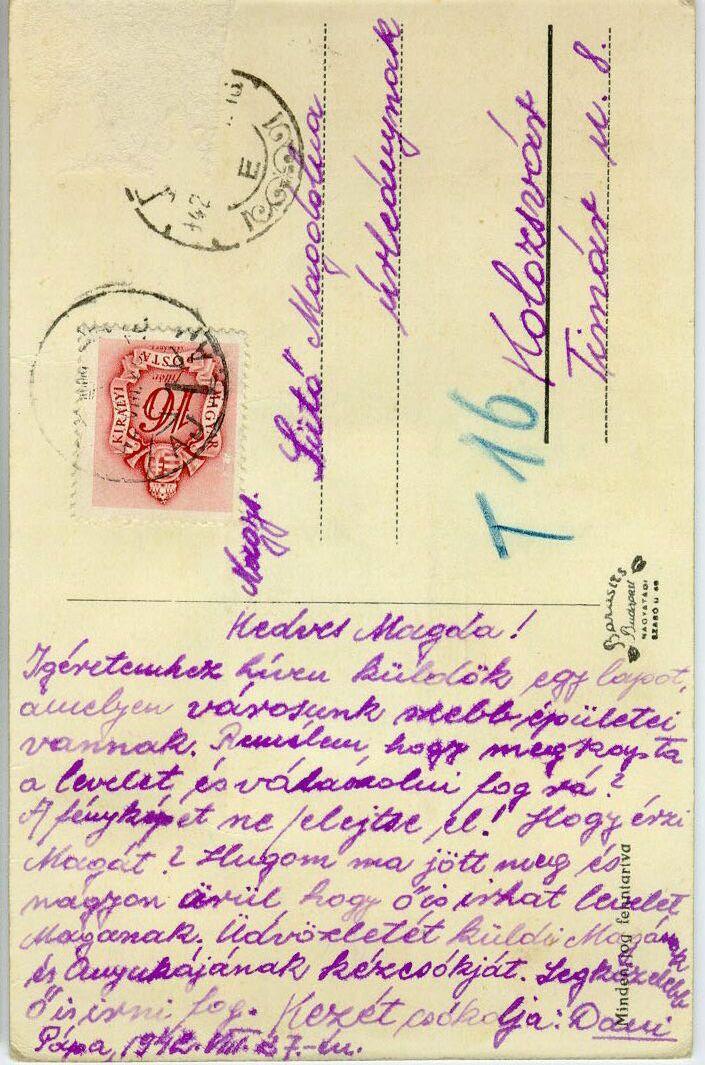 Kedves Magda!
Igéretemhez híven küldök egy lapot,
amelyen városunk szebb épületei
vannak. Remélem, hogy megkapta
a levelet, és válaszolni fog rá?
A fényképet ne felejtse el! Hogy érzi
Magát? Hugom ma jött meg és
nagyon örül hogy ő is irhat levelet
Magának. Üdvözletét küldi Magának
és Anyukájának kézcsókját. Legközelebb
ő is irni fog. Kezét csókolja: Dani
Pápa, 1942. VIII. 27.-én.
Nagys.
Sütő Magdolna
úrleánynak
Kolozsvár
Timár u. 8.
T 16
MAGYAR KIRÁLYI POSTA
16
fillér
42
E
Barasits
Budapest
NAGYATÁDI
SZABÓ U
Minden jog fenntartva